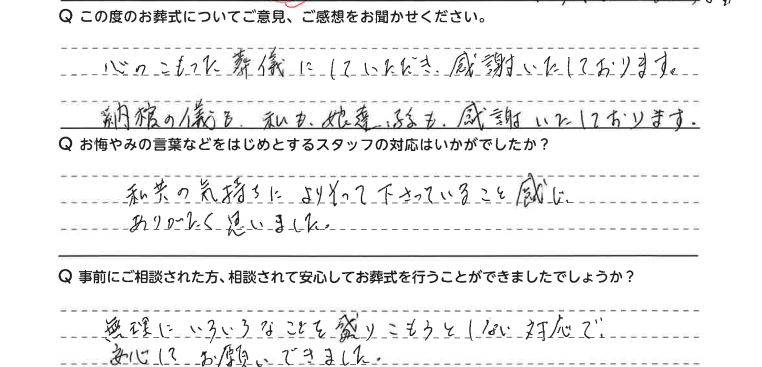 Q この度のお葬式についてご意見、ご感想をお聞かせください。
心のこもった葬儀にしていただき、感謝いたしております。
納棺の儀も、私も、娘達、孫も、感謝いたしております。
Q お悔やみの言葉などをはじめとするスタッフの対応はいかがでしたか？
私共の気持ちによりそって下さっていること感じ、
ありがたく思いました。
Q 事前にご相談された方、相談されて安心してお葬式を行うことができましたでしょうか？
無理にいろいろなことを盛りこもうとしない対応で、
安心してお願いできました。